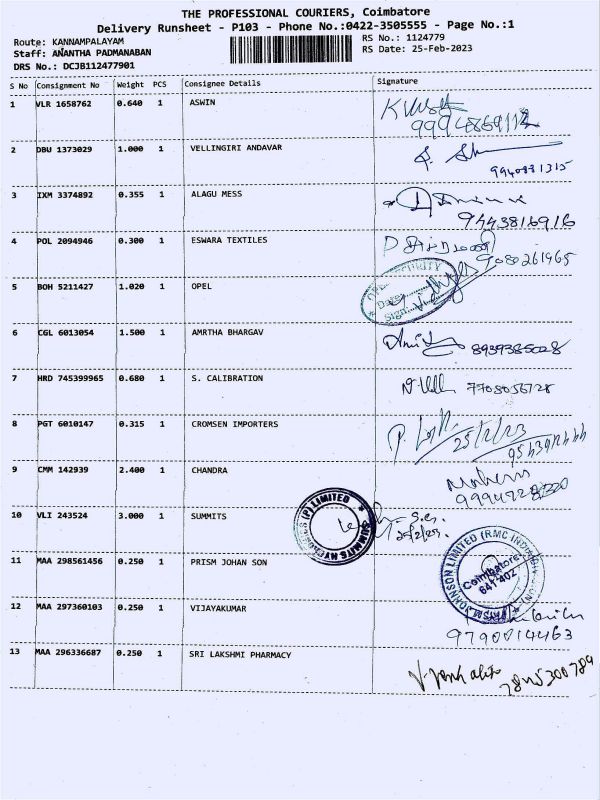 THE PROFESSIONAL COURIERS, Coimbatore
Delivery Runsheet - P103 - Phone No.:0422-3505555 - Page No.:1
Route: KANNAMPALAYAM
RS No.: 1124779
Staff: ANANTHA PADMANABAN
RS Date: 25-Feb-2023
DRS No.: DCJB112477901
S No Consignment No Weight PCS Consignee Details Signature
1 VLR 1658762 0.640 1 ASWIN
2 DBU 1373029 1.000 1 VELLINGIRI ANDAVAR
9940881315
3 IXM 3374892 0.355 1 ALAGU MESS
9443816916
4 POL 2094946 0.300 1 ESWARA TEXTILES
9080261965
5 BOH 5211427 1.020 1 OPEL
6 CGL 6013054 1.500 1 AMRTHA BHARGAV
8939385028
7 HRD 745399965 0.680 1 S. CALIBRATION
7708056728
8 PGT 6010147 0.315 1 CROMSEN IMPORTERS
25/2/23
9 CMM 142939 2.400 1 CHANDRA
10 VLI 243524 3.000 1 SUMMITS
11 MAA 298561456 0.250 1 PRISM JOHAN SON
Coimbatore
641 402
12 MAA 297360103 0.250 1 VIJAYAKUMAR
9790014463
13 MAA 296336687 0.250 1 SRI LAKSHMI PHARMACY